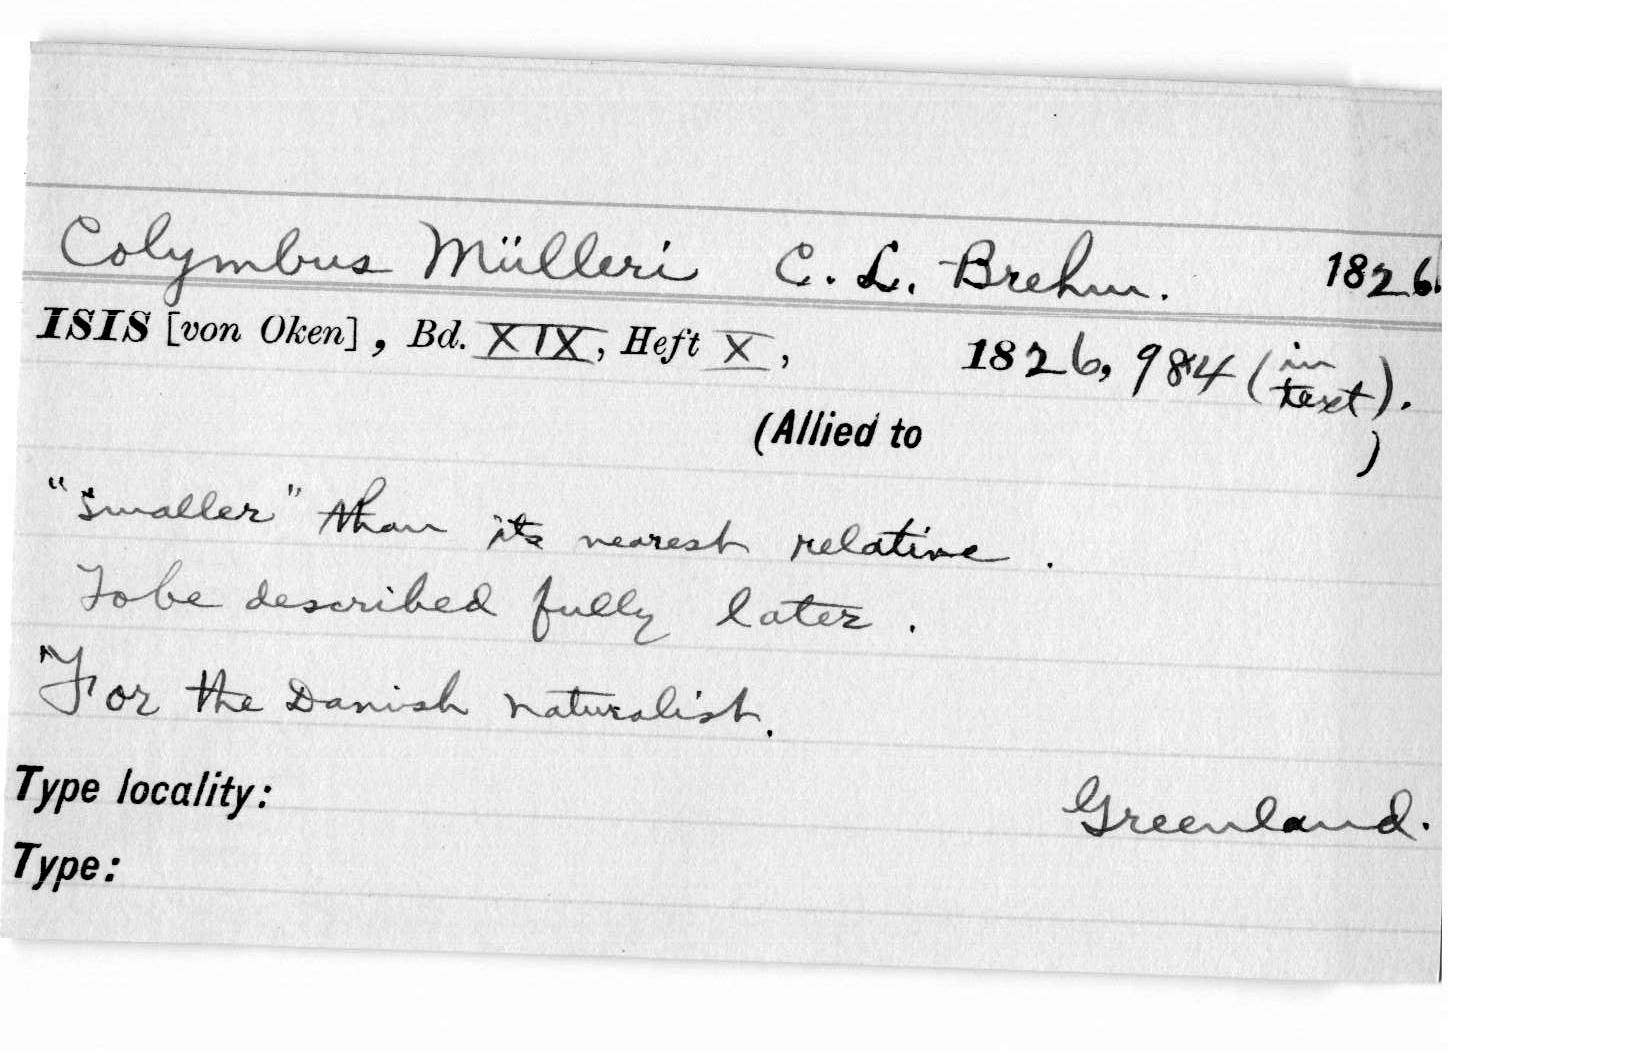 Colymbus Mülleri C. L. Brehm. 1826.
ISIS [von Oken], Bd. XIX, Heft X, 1826, 984 (in text).
(Allied to )
"Smaller" than its nearest relative.
To be described fully later.
"For the Danish naturalist.
Type locality: Greenland.
Type: